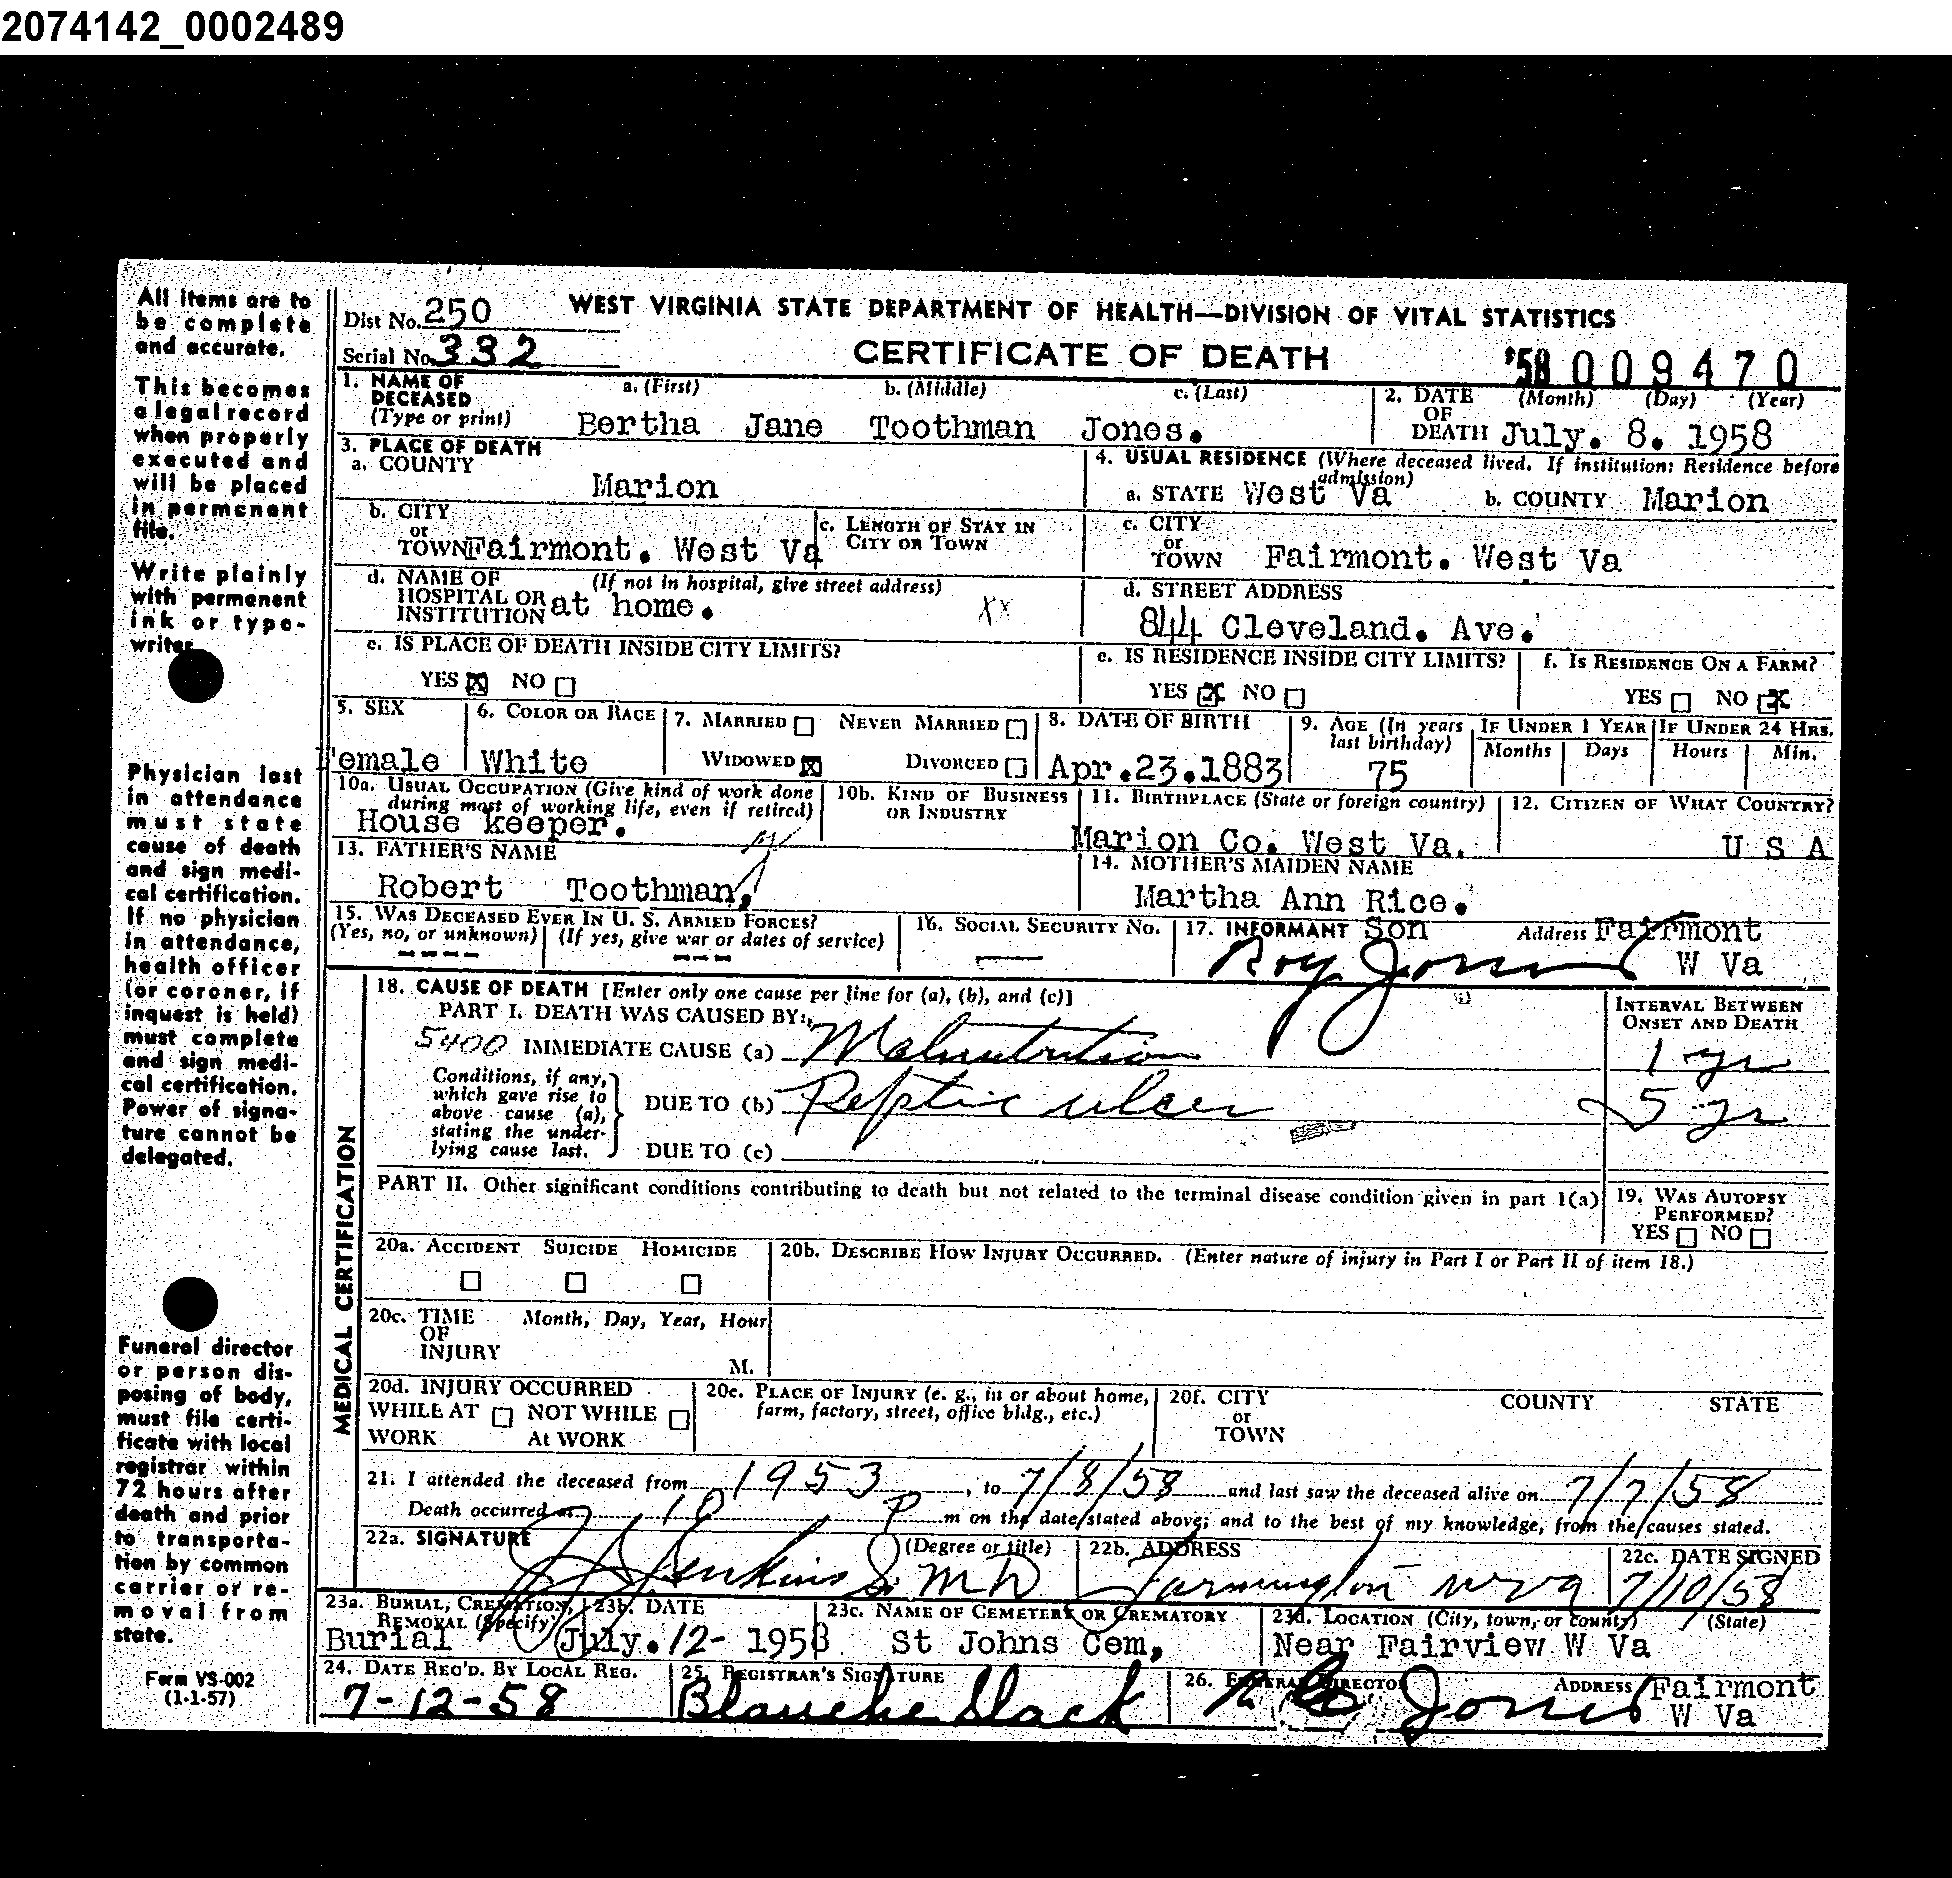 2074142_0002489
All items are to be complete and accurate.
This becomes a legal record when properly executed and will be placed in permanent file.
Write plainly with permanent ink or typewriter.
Physician last in attendance must state cause of death and sign medical certification. If no physician in attendance, health officer (or coroner, if inquest is held) must complete and sign medical certification. Power of signature cannot be delegated.
Funeral director or person disposing of body, must file certificate with local registrar within 72 hours after death and prior to transportation by common carrier or removal from state.
Form VS-002
(1-1-57)
Dist No. 250 WEST VIRGINIA STATE DEPARTMENT OF HEALTH—DIVISION OF VITAL STATISTICS
Serial No. 332 CERTIFICATE OF DEATH '58 009470
1. NAME OF DECEASED (Type or print) a. (First) b. (Middle) c. (Last) 2. DATE OF DEATH (Month) (Day) (Year)
Bertha Jane Toothman Jones. July. 8. 1958
3. PLACE OF DEATH
a. COUNTY Marion
4. USUAL RESIDENCE (Where deceased lived. If institution: Residence before admission)
a. STATE West Va b. COUNTY Marion
b. CITY or TOWN Fairmont. West Va c. LENGTH OF STAY IN CITY OR TOWN
c. CITY or TOWN Fairmont. West Va
d. NAME OF HOSPITAL OR INSTITUTION (If not in hospital, give street address) at home. XX
d. STREET ADDRESS 844 Cleveland. Ave.
e. IS PLACE OF DEATH INSIDE CITY LIMITS? YES X NO
e. IS RESIDENCE INSIDE CITY LIMITS? YES X NO
f. IS RESIDENCE ON A FARM? YES NO X
5. SEX Female
6. COLOR OR RACE White
7. MARRIED NEVER MARRIED WIDOWED X DIVORCED
8. DATE OF BIRTH Apr.23.1883
9. AGE (In years last birthday) 75
IF UNDER 1 YEAR Months Days
IF UNDER 24 HRS. Hours Min.
10a. USUAL OCCUPATION (Give kind of work done during most of working life, even if retired) House keeper.
10b. KIND OF BUSINESS OR INDUSTRY
11. BIRTHPLACE (State or foreign country) Marion Co. West Va.
12. CITIZEN OF WHAT COUNTRY? U S A
13. FATHER'S NAME Robert Toothman,
14. MOTHER'S MAIDEN NAME Martha Ann Rice.
15. WAS DECEASED EVER IN U. S. ARMED FORCES? (Yes, no, or unknown) ---- (If yes, give war or dates of service) ---
16. SOCIAL SECURITY NO. —
17. INFORMANT Son Roy Jones Address Fairmont W Va
MEDICAL CERTIFICATION
18. CAUSE OF DEATH [Enter only one cause per line for (a), (b), and (c)] INTERVAL BETWEEN ONSET AND DEATH
PART I. DEATH WAS CAUSED BY:
5400 IMMEDIATE CAUSE (a) Malnutrition 1 yr
Conditions, if any, which gave rise to above cause (a), stating the underlying cause last.
DUE TO (b) Peptic ulcer 5 yr
DUE TO (c)
PART II. Other significant conditions contributing to death but not related to the terminal disease condition given in part I(a)
19. WAS AUTOPSY PERFORMED? YES NO
20a. ACCIDENT SUICIDE HOMICIDE
20b. DESCRIBE HOW INJURY OCCURRED. (Enter nature of injury in Part I or Part II of item 18.)
20c. TIME OF INJURY Month, Day, Year, Hour M.
20d. INJURY OCCURRED WHILE AT WORK NOT WHILE At WORK
20e. PLACE OF INJURY (e. g., in or about home, farm, factory, street, office bldg., etc.)
20f. CITY or TOWN COUNTY STATE
21. I attended the deceased from 1953, to 7/8/58 and last saw the deceased alive on 7/7/58
Death occurred at 10 P m on the date stated above; and to the best of my knowledge, from the causes stated.
22a. SIGNATURE (Degree or title) Jenkins MD
22b. ADDRESS Farmington W Va
22c. DATE SIGNED 7/10/58
23a. BURIAL, CREMATION, REMOVAL (Specify) Burial
23b. DATE July.12- 1958
23c. NAME OF CEMETERY OR CREMATORY St Johns Cem,
23d. LOCATION (City, town, or county) (State) Near Fairview W Va
24. DATE REC'D. BY LOCAL REG. 7-12-58
25. REGISTRAR'S SIGNATURE Blanche Slack
26. FUNERAL DIRECTOR Jones ADDRESS Fairmont W Va